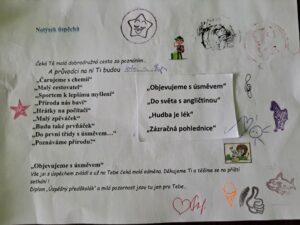 Notýsek úspěchů
Čeká Tě malá dobrodružná cesta za poznáním.
A průvodci na ní Ti budou
„Čarujeme s chemií“
„Malý cestovatel“
„Sportem k lepšímu myšlení“
„Příroda nás baví“
„Hrátky na počítači“
„Malý zpěváček“
„Budu také prvňáček“
„Do první třídy s úsměvem...“
„Poznáváme přírodu?“
„Objevujeme s úsměvem“
„Do světa s angličtinou“
„Hudba je lék“
„Zázračná pohlednice“
„Objevujeme s úsměvem“
Vše jsi s úspěchem zvládl a už na Tebe čeká malá odměna. Děkujeme Ti a těšíme se na příští
setkání !
Diplom „Úspěšný předškolák“ a milá pozornost jsou tu jen pro Tebe.